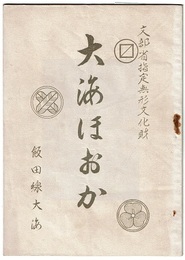 文部省指定無形文化財
大海ほおか
飯田線大海